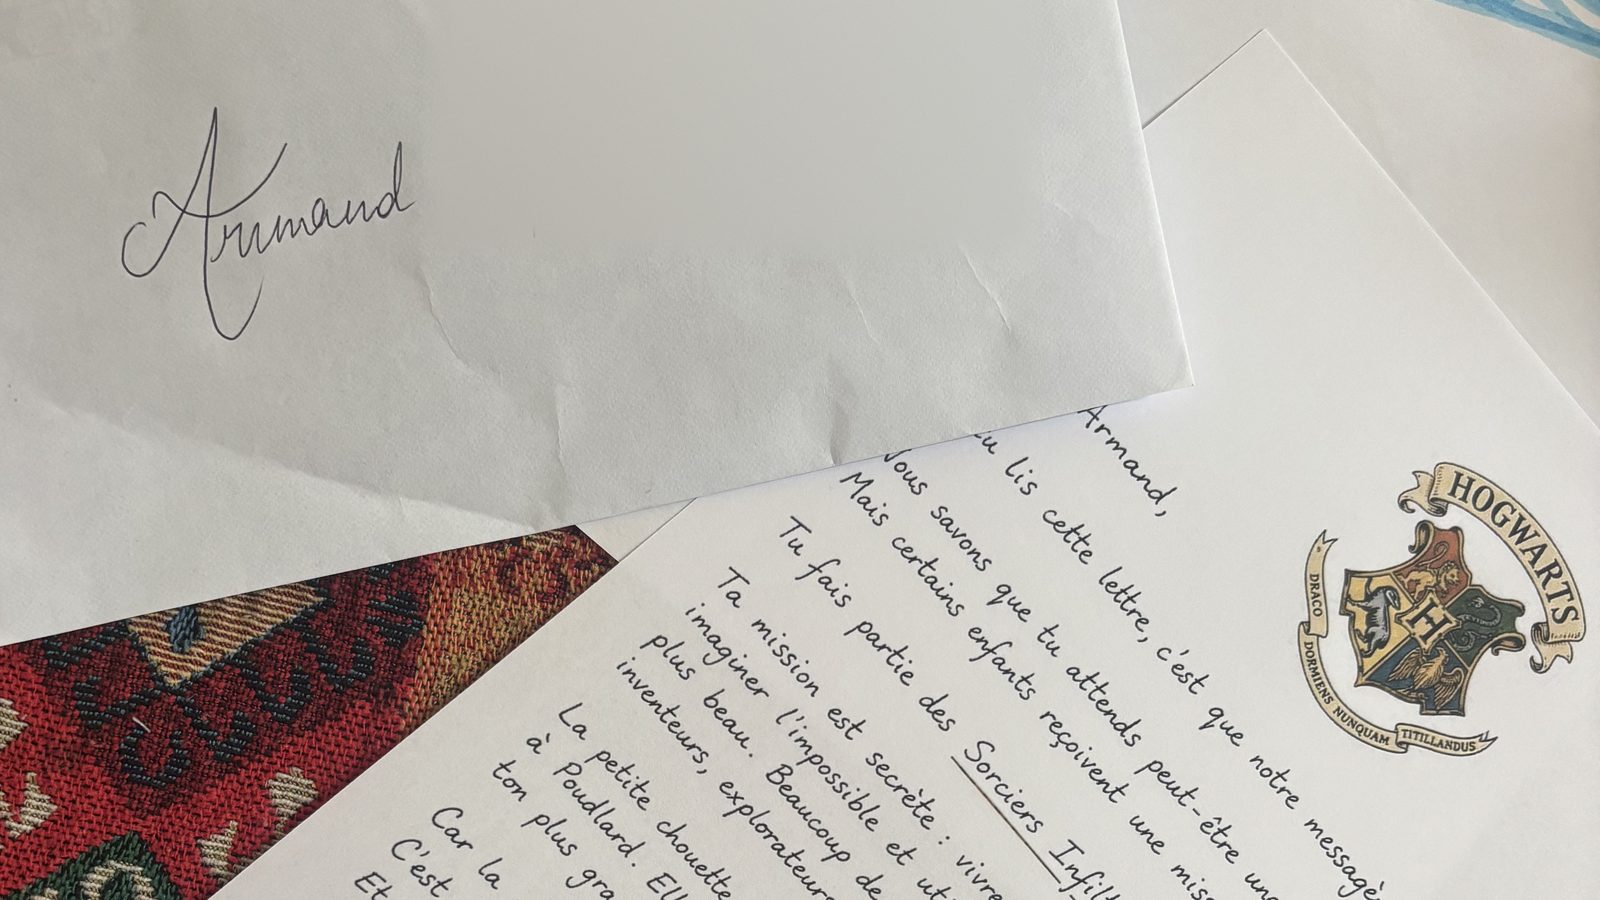 Armand
Armand,
lis cette lettre, c'est que notre
Nous savons que tu attends peut-être
Mais certains enfants reçoivent une
Tu fais partie des Sorciers
Ta mission est secrète : vivre
imaginer l'impossible et
plus beau. Beaucoup de
inventeurs, explorateurs
La petite chouette
à Poudlard.
ton plus
Car la
C'est
Et
HOGWARTS
DRACO DORMIENS NUNQUAM TITILLANDUS